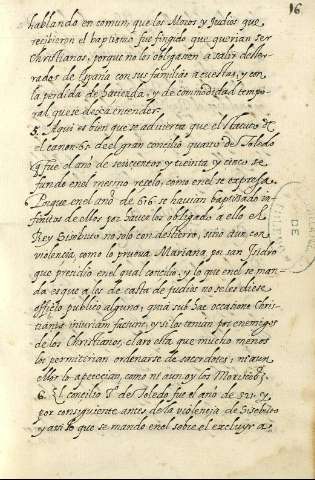 16
hablando en comun, que los Moros y Judios que
recibieron el baptismo fue fingido que querian ser
christianos, porque no les obligasen a salir dester-
rados de España con sus familias acuestas, y con
la perdida de hazienda, y de commodidad tempo-
ral que se dexa entender.
5. Aqui es bien que se advierta que el
el canon 65 de el gran concilio quarto de Toledo
q fue el año de seiscientos y treinta y cinco se
funda en el mesmo rezelo, como en el se expresa.
Porque en el año de 616 se havian baptizado in-
finitos de ellos por haverlos obligado a ello el
Rey Sisebuto no solo con destierro, sino aun con
violencia, como lo prueva Mariana por san Isidro
que presidio en el qual concilio, y lo que en el se man-
da es que a los de casta de judios no se les diese
officio publico alguno, quia sub hac occasione Chris-
tianis iniuriam faciunt, y si los tenian por enemigos
de los Christianos, claro esta que mucho menos
los permitirian ordenarse de sacerdotes, ni aun
ellos lo apetecian, como ni aun oy los Moriscos.
6. El concilio 2º de Toledo fue el año de 521. y
por consiguiente antes de la violencia de Sisebuto
y assi lo que se mando en el sobre el excluyr a
DE